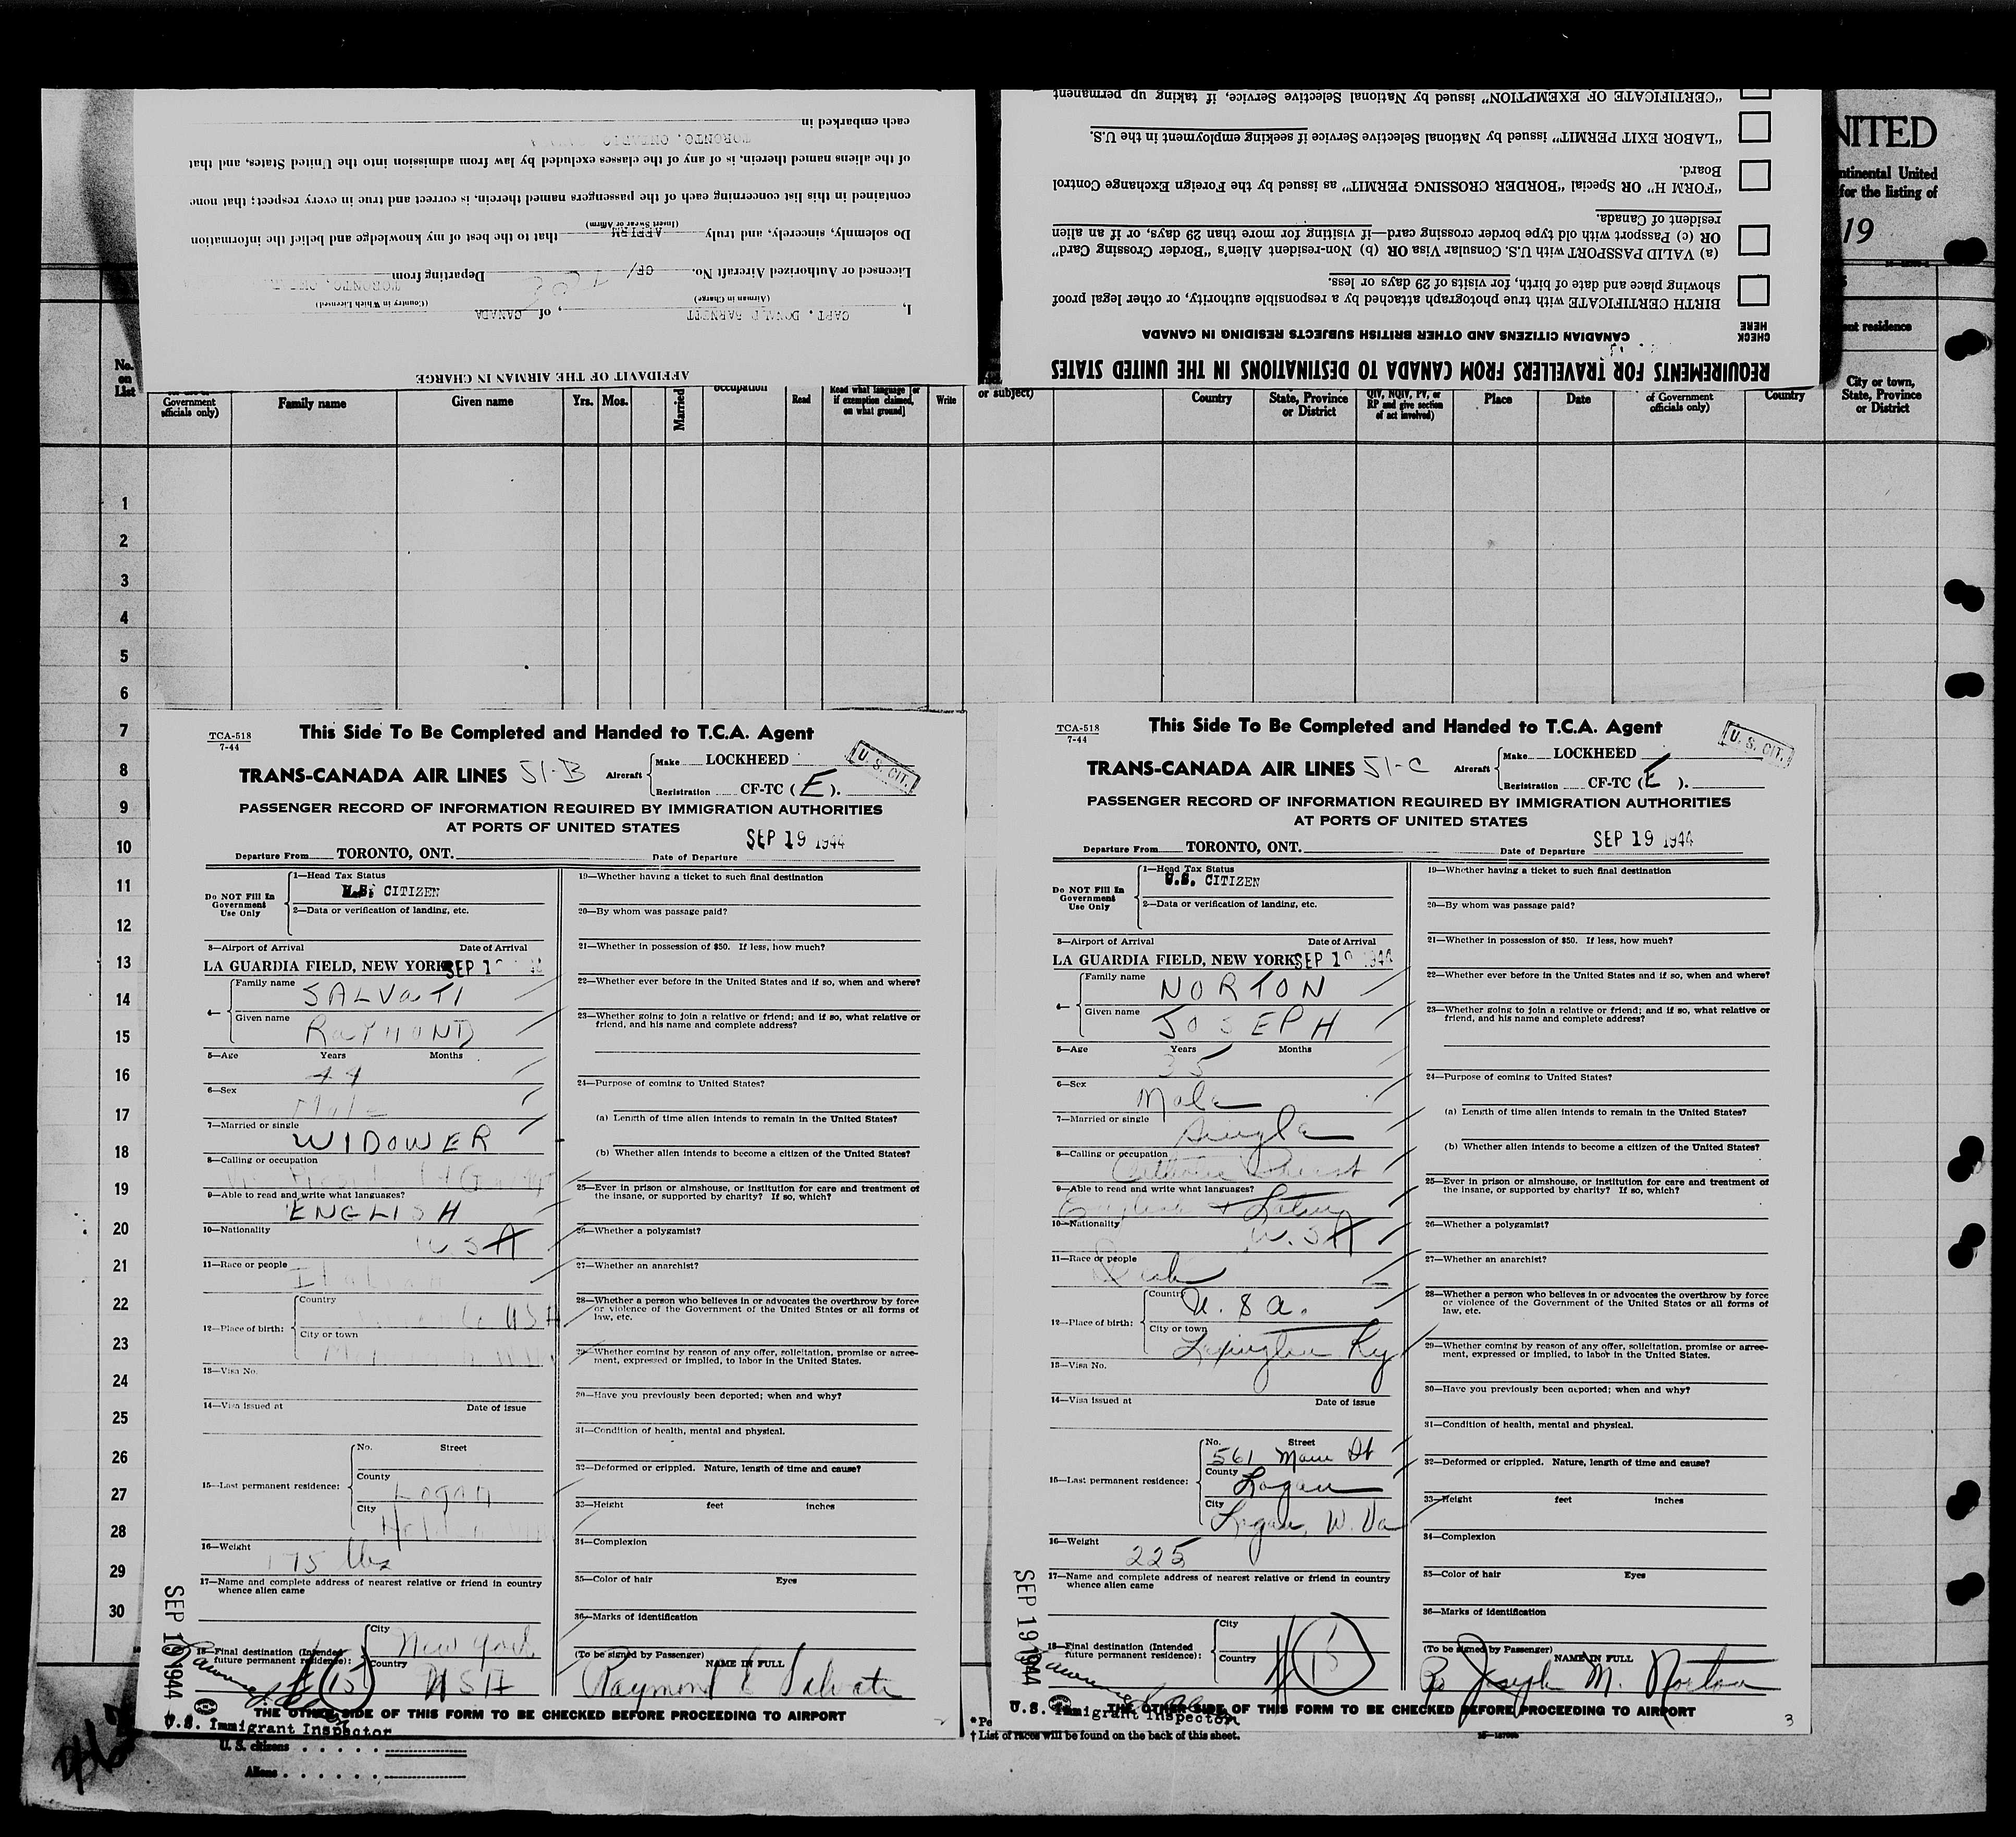 each embarked in
TORONTO, ONTARIO
of the aliens named therein, is of any of the classes excluded by law from admission into the United States, and that
contained in this list concerning each of the passengers named therein, is correct and true in every respect; that none
(Insert Swear or Affirm)
Do solemnly, sincerely, and truly AFFIRM that to the best of my knowledge and belief the information
Licensed or Authorized Aircraft No. CF/ Departing from TORONTO,
(Airman in Charge) (Country in Which Licensed)
I, CAPT. DONALD BARNETT, of CANADA
AFFIDAVIT OF THE AIRMAN IN CHARGE
"CERTIFICATE OF EXEMPTION" issued by National Selective Service, if taking up permanent
"LABOR EXIT PERMIT" issued by National Selective Service if seeking employment in the U.S.
Board.
"FORM H" OR Special "BORDER CROSSING PERMIT" as issued by the Foreign Exchange Control
resident of Canada.
OR (c) Passport with old type border crossing card—if visiting for more than 29 days, or if an alien
(a) VALID PASSPORT with U.S. Consular Visa OR (b) Non-resident Alien's "Border Crossing Card"
showing place and date of birth, for visits of 29 days or less.
BIRTH CERTIFICATE with true photograph attached by a responsible authority, or other legal proof
CANADIAN CITIZENS AND OTHER BRITISH SUBJECTS RESIDING IN CANADA
CHECK HERE
REQUIREMENTS FOR TRAVELLERS FROM CANADA TO DESTINATIONS IN THE UNITED STATES
NITED
ntinental United
for the listing of
19
nt residence
City or town, State, Province or District
No. on List
Government officials only)
Family name
Given name
Yrs. Mos.
Married
occupation
Read
Read what language [or if exemption claimed, on what ground]
Write
or subject)
Country
State, Province or District
QIV, NQIV, PV, or RP and give section of act involved)
Place
Date
of Government officials only)
Country
1
2
3
4
5
6
7
8
9
10
11
12
13
14
15
16
17
18
19
20
21
22
23
24
25
26
27
28
29
30
TCA-518
7-44
This Side To Be Completed and Handed to T.C.A. Agent
TRANS-CANADA AIR LINES 51-B
Aircraft
Make LOCKHEED
Registration CF-TC (E).
U. S. CIT.
PASSENGER RECORD OF INFORMATION REQUIRED BY IMMIGRATION AUTHORITIES
AT PORTS OF UNITED STATES
Departure From TORONTO, ONT. Date of Departure SEP 19 1944
Do NOT Fill In Government Use Only
1—Head Tax Status
U.S. CITIZEN
2—Data or verification of landing, etc.
3—Airport of Arrival Date of Arrival
LA GUARDIA FIELD, NEW YORK SEP 19
4— Family name SALVATI
Given name RAYMOND
5—Age Years Months
44
6—Sex
Male
7—Married or single
WIDOWER
8—Calling or occupation
9—Able to read and write what languages?
ENGLISH
10—Nationality
USA
11—Race or people
Italian
12—Place of birth:
Country
USA
City or town
13—Visa No.
14—Visa issued at Date of issue
15—Last permanent residence:
No. Street
County
Logan
City
16—Weight
175 lbs
17—Name and complete address of nearest relative or friend in country whence alien came
18—Final destination (Intended future permanent residence):
City New York
Country USA
19—Whether having a ticket to such final destination
20—By whom was passage paid?
21—Whether in possession of $50. If less, how much?
22—Whether ever before in the United States and if so, when and where?
23—Whether going to join a relative or friend; and if so, what relative or friend, and his name and complete address?
24—Purpose of coming to United States?
(a) Length of time alien intends to remain in the United States?
(b) Whether alien intends to become a citizen of the United States?
25—Ever in prison or almshouse, or institution for care and treatment of the insane, or supported by charity? If so, which?
26—Whether a polygamist?
27—Whether an anarchist?
28—Whether a person who believes in or advocates the overthrow by force or violence of the Government of the United States or all forms of law, etc.
29—Whether coming by reason of any offer, solicitation, promise or agreement, expressed or implied, to labor in the United States.
30—Have you previously been deported; when and why?
31—Condition of health, mental and physical.
32—Deformed or crippled. Nature, length of time and cause?
33—Height feet inches
34—Complexion
35—Color of hair Eyes
36—Marks of identification
(To be signed by Passenger) NAME IN FULL
Raymond E Salvati
THE OTHER SIDE OF THIS FORM TO BE CHECKED BEFORE PROCEEDING TO AIRPORT
SEP 19 1944
U.S. Immigrant Inspector
U.S. citizens
Aliens
TCA-518
7-44
This Side To Be Completed and Handed to T.C.A. Agent
TRANS-CANADA AIR LINES 51-C
Aircraft
Make LOCKHEED
Registration CF-TC (E).
U. S. CIT.
PASSENGER RECORD OF INFORMATION REQUIRED BY IMMIGRATION AUTHORITIES
AT PORTS OF UNITED STATES
Departure From TORONTO, ONT. Date of Departure SEP 19 1944
Do NOT Fill In Government Use Only
1—Head Tax Status
U.S. CITIZEN
2—Data or verification of landing, etc.
3—Airport of Arrival Date of Arrival
LA GUARDIA FIELD, NEW YORK SEP 19 1944
4— Family name NORTON
Given name JOSEPH
5—Age Years Months
35
6—Sex
Male
7—Married or single
Single
8—Calling or occupation
Catholic Priest
9—Able to read and write what languages?
English + Latin
10—Nationality
U.S.A
11—Race or people
Irish
12—Place of birth:
Country
U. S a.
City or town
Lexington Ky
13—Visa No.
14—Visa issued at Date of issue
15—Last permanent residence:
No. Street
561 Main St
County
Logan
City
Logan, W. Va
16—Weight
225
17—Name and complete address of nearest relative or friend in country whence alien came
18—Final destination (Intended future permanent residence):
City
Country
19—Whether having a ticket to such final destination
20—By whom was passage paid?
21—Whether in possession of $50. If less, how much?
22—Whether ever before in the United States and if so, when and where?
23—Whether going to join a relative or friend; and if so, what relative or friend, and his name and complete address?
24—Purpose of coming to United States?
(a) Length of time alien intends to remain in the United States?
(b) Whether alien intends to become a citizen of the United States?
25—Ever in prison or almshouse, or institution for care and treatment of the insane, or supported by charity? If so, which?
26—Whether a polygamist?
27—Whether an anarchist?
28—Whether a person who believes in or advocates the overthrow by force or violence of the Government of the United States or all forms of law, etc.
29—Whether coming by reason of any offer, solicitation, promise or agreement, expressed or implied, to labor in the United States.
30—Have you previously been deported; when and why?
31—Condition of health, mental and physical.
32—Deformed or crippled. Nature, length of time and cause?
33—Height feet inches
34—Complexion
35—Color of hair Eyes
36—Marks of identification
(To be signed by Passenger) NAME IN FULL
Joseph M. Norton
THE OTHER SIDE OF THIS FORM TO BE CHECKED BEFORE PROCEEDING TO AIRPORT
3
SEP 19 1944
U.S. Immigrant Inspector
† List of races will be found on the back of this sheet.